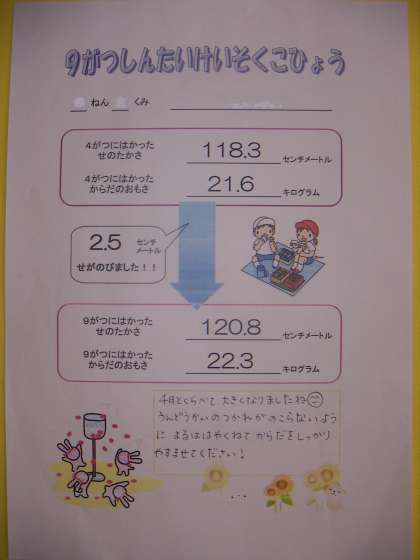 9がつしんたいけいそくこひょう
ねん くみ
4がつにはかった
せのたかさ
118.3 センチメートル
4がつにはかった
からだのおもさ
21.6 キログラム
2.5 センチ
メートル
せがのびました!!
9がつにはかった
せのたかさ
120.8 センチメートル
9がつにはかった
からだのおもさ
22.3 キログラム
4月とくらべて、大きくなりましたね
うんどうかいのつかれがのこらないよう
に よるははやくねて からだをしっかり
やすませてください!